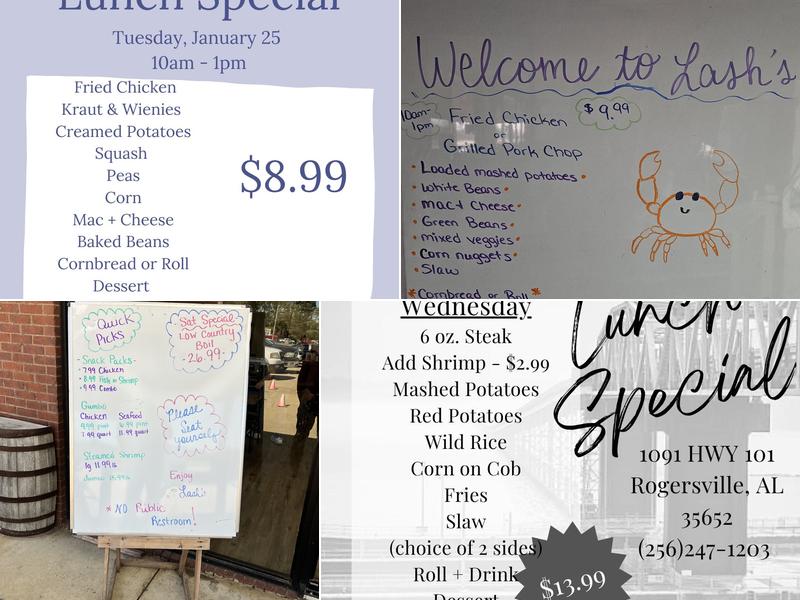 Lunch Special
Tuesday, January 25
10am - 1pm
Fried Chicken
Kraut & Wienies
Creamed Potatoes
Squash
Peas
Corn
Mac + Cheese
Baked Beans
Cornbread or Roll
Dessert
$8.99
Welcome to Lash's
10am-
1pm
$9.99
Fried Chicken
or
Grilled Pork Chop
• Loaded mashed potatoes •
• White Beans •
• mac + Cheese •
• Green Beans •
• mixed veggies •
• Corn nuggets •
• Slaw
*Cornbread or Roll*
Quick
Picks
- Snack Packs -
• 7.99 Chicken
• 8.99 Fish or Shrimp
• 9.99 Combo
Gumbo
Chicken Seafood
pint pint
7.99 quart 11.99 quart
Steamed Shrimp
Sat Special
Low Country
Boil
- 26.99 -
Please
Seat
yourself
Enjoy
Lash's
* NO Public
Restroom!
Wednesday
6 oz. Steak
Add Shrimp - $2.99
Mashed Potatoes
Red Potatoes
Wild Rice
Corn on Cob
Fries
Slaw
(choice of 2 sides)
Roll + Drink
Dessert
$13.99
Lunch
Special
1091 HWY 101
Rogersville, AL
35652
(256)247-1203